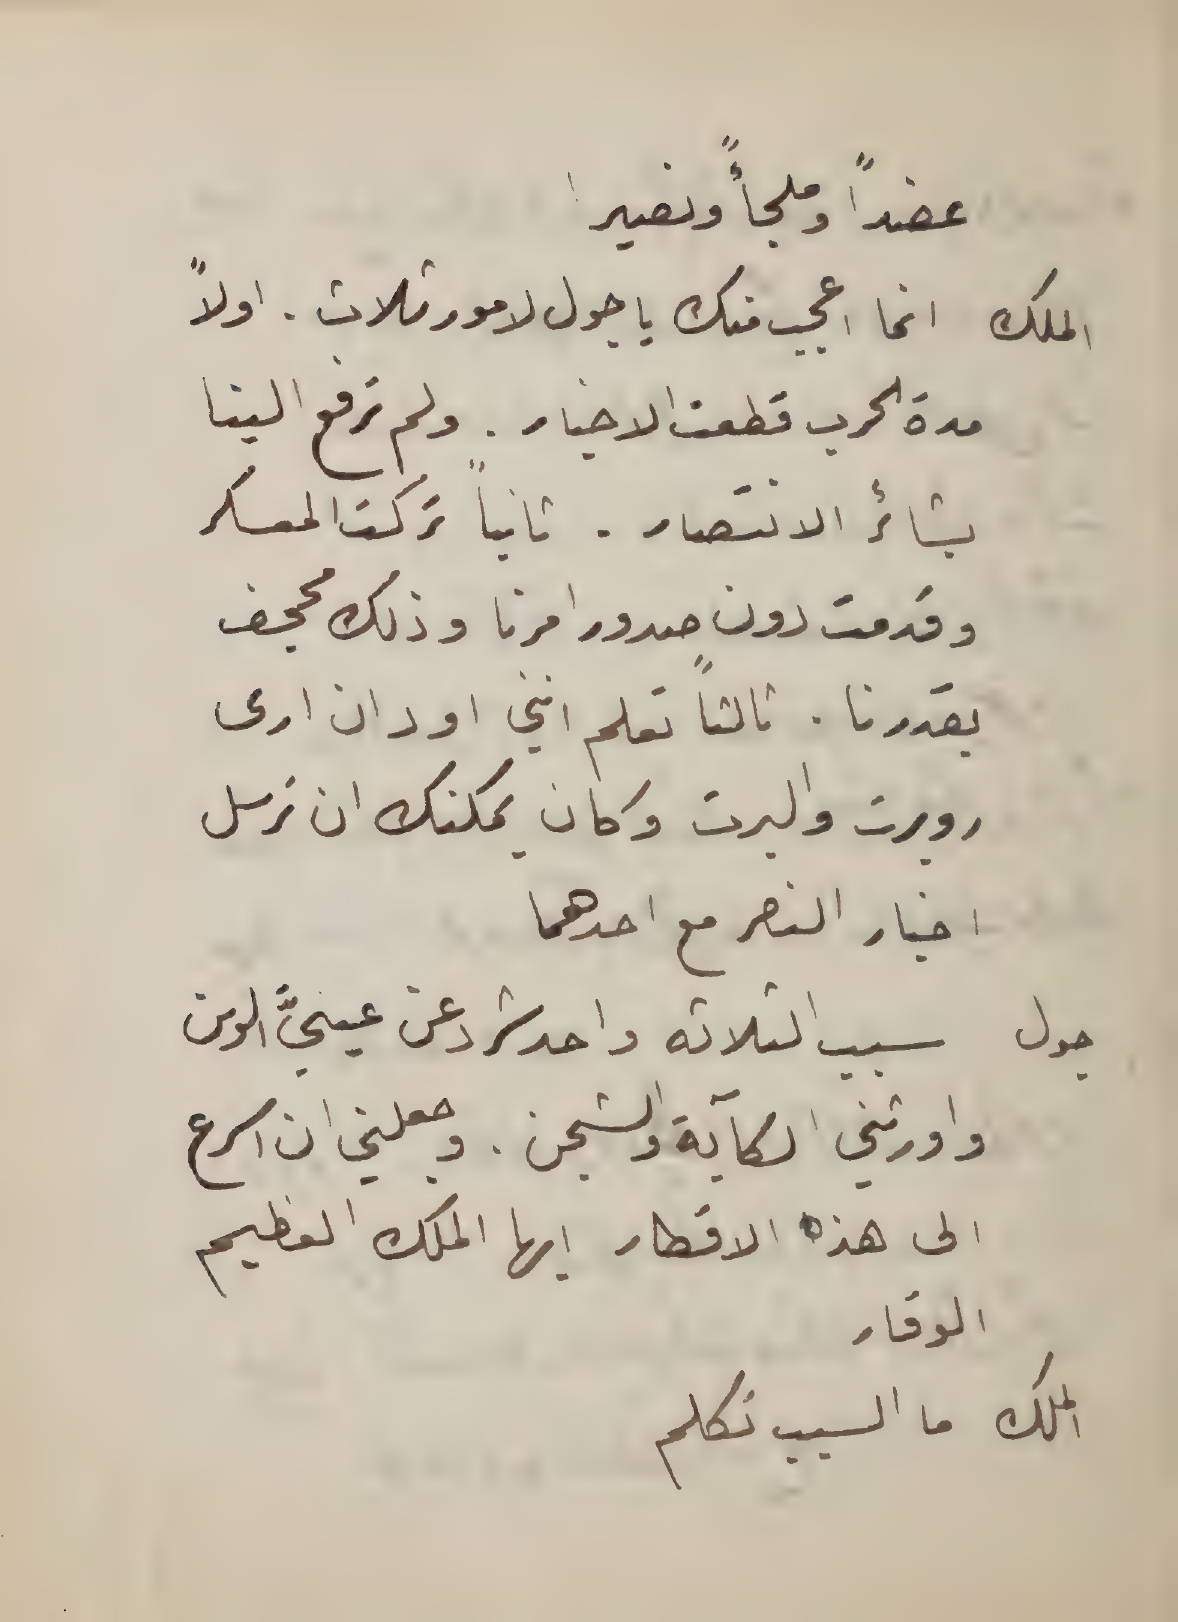 عضداً وملجأً ونصيرا
الملك انما اعجب منك يا جول لامور ثلاث . اولاً
مدة الحرب قطعت الاخبار . ولم ترفع الينا
بشائر الانتصار . ثانياً تركت المعسكر
وقدمت دون صدور امرنا وذلك مجحف
بقدرنا . ثالثاً تعلم انني اود ان ارى
روبرت والبرت وكان يمكنك ان ترسل
اخبار النصر مع احدهما
جول سبب الثلاثه واحد شرد عن عينيَّ الوسن
واورثني الكآبة والشجن . وجعلني ان اسرع
الى هذه الاقطار ايها الملك العظيم
الوقار
الملك ما السبب تكلم